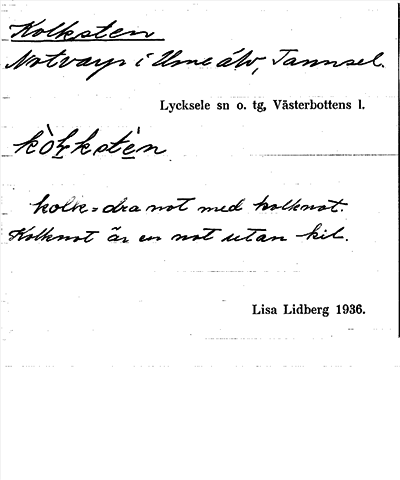 Kolksten
Notvarp i Ume älv, Tannsel.
Lycksele sn o. tg, Västerbottens l.
kòlkstèn
kolk = dra not med kolknot.
Kolknot är en not utan kil.
Lisa Lidberg 1936.